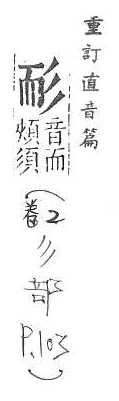 重訂直音篇
耏
音而
煩須
(卷2彡部P.103)